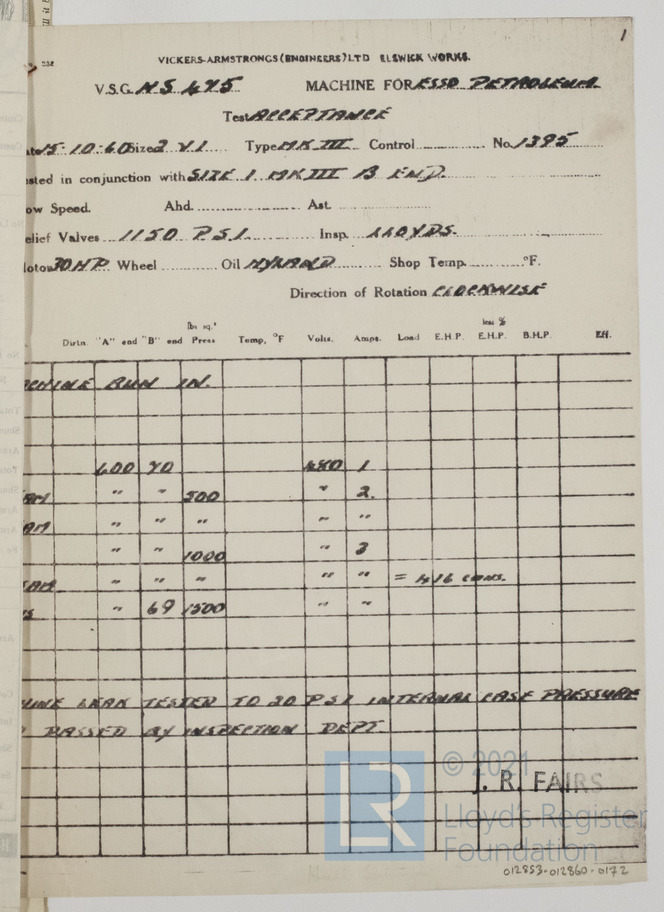 1
232
VICKERS-ARMSTRONGS (ENGINEERS) LTD ELSWICK WORKS.
V.S.G. NS 475 MACHINE FOR ESSO PETROLEUM.
Test ACCEPTANCE
15-10-60 Size 2 Type MK III Control No. 1395
sted in conjunction with SIZE 1 MK III B END.
ow Speed. Ahd. Ast.
elief Valves 1150 P.S.I. Insp. LLOYDS.
otor 30 H.P. Wheel Oil HYLAND Shop Temp. °F.
Direction of Rotation CLOCKWISE
Dirtn. "A" end "B" end lbs sq." Press Temp, °F Volts. Amps. Load E.H.P. less % E.H.P. B.H.P. Eff.
CHINE RUN IN.
600 70 1
" " 500 " 2.
" " " " "
" " 1000 " 3
" " " " " =
" 69 1500 " "
HINE LEAK TESTED TO 20 P.S.I. INTERNAL CASE PRESSURE
PASSED BY INSPECTION DEPT
J. R. FAIRS
LR
© 2021
Lloyd's Register
Foundation
012853-012860-0172